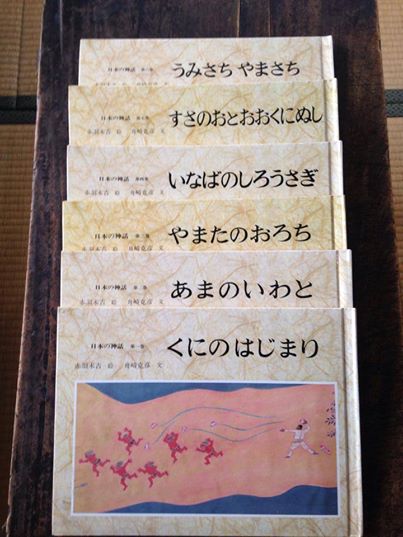 日本の神話 第六巻
うみさち やまさち
日本の神話 第五巻
すさのおとおおくにぬし
赤羽末吉 絵 舟崎克彦 文
日本の神話 第四巻
いなばのしろうさぎ
赤羽末吉 絵 舟崎克彦 文
日本の神話 第三巻
やまたのおろち
赤羽末吉 絵 舟崎克彦 文
日本の神話 第二巻
あまのいわと
赤羽末吉 絵 舟崎克彦 文
日本の神話 第一巻
くにのはじまり
赤羽末吉 絵 舟崎克彦 文